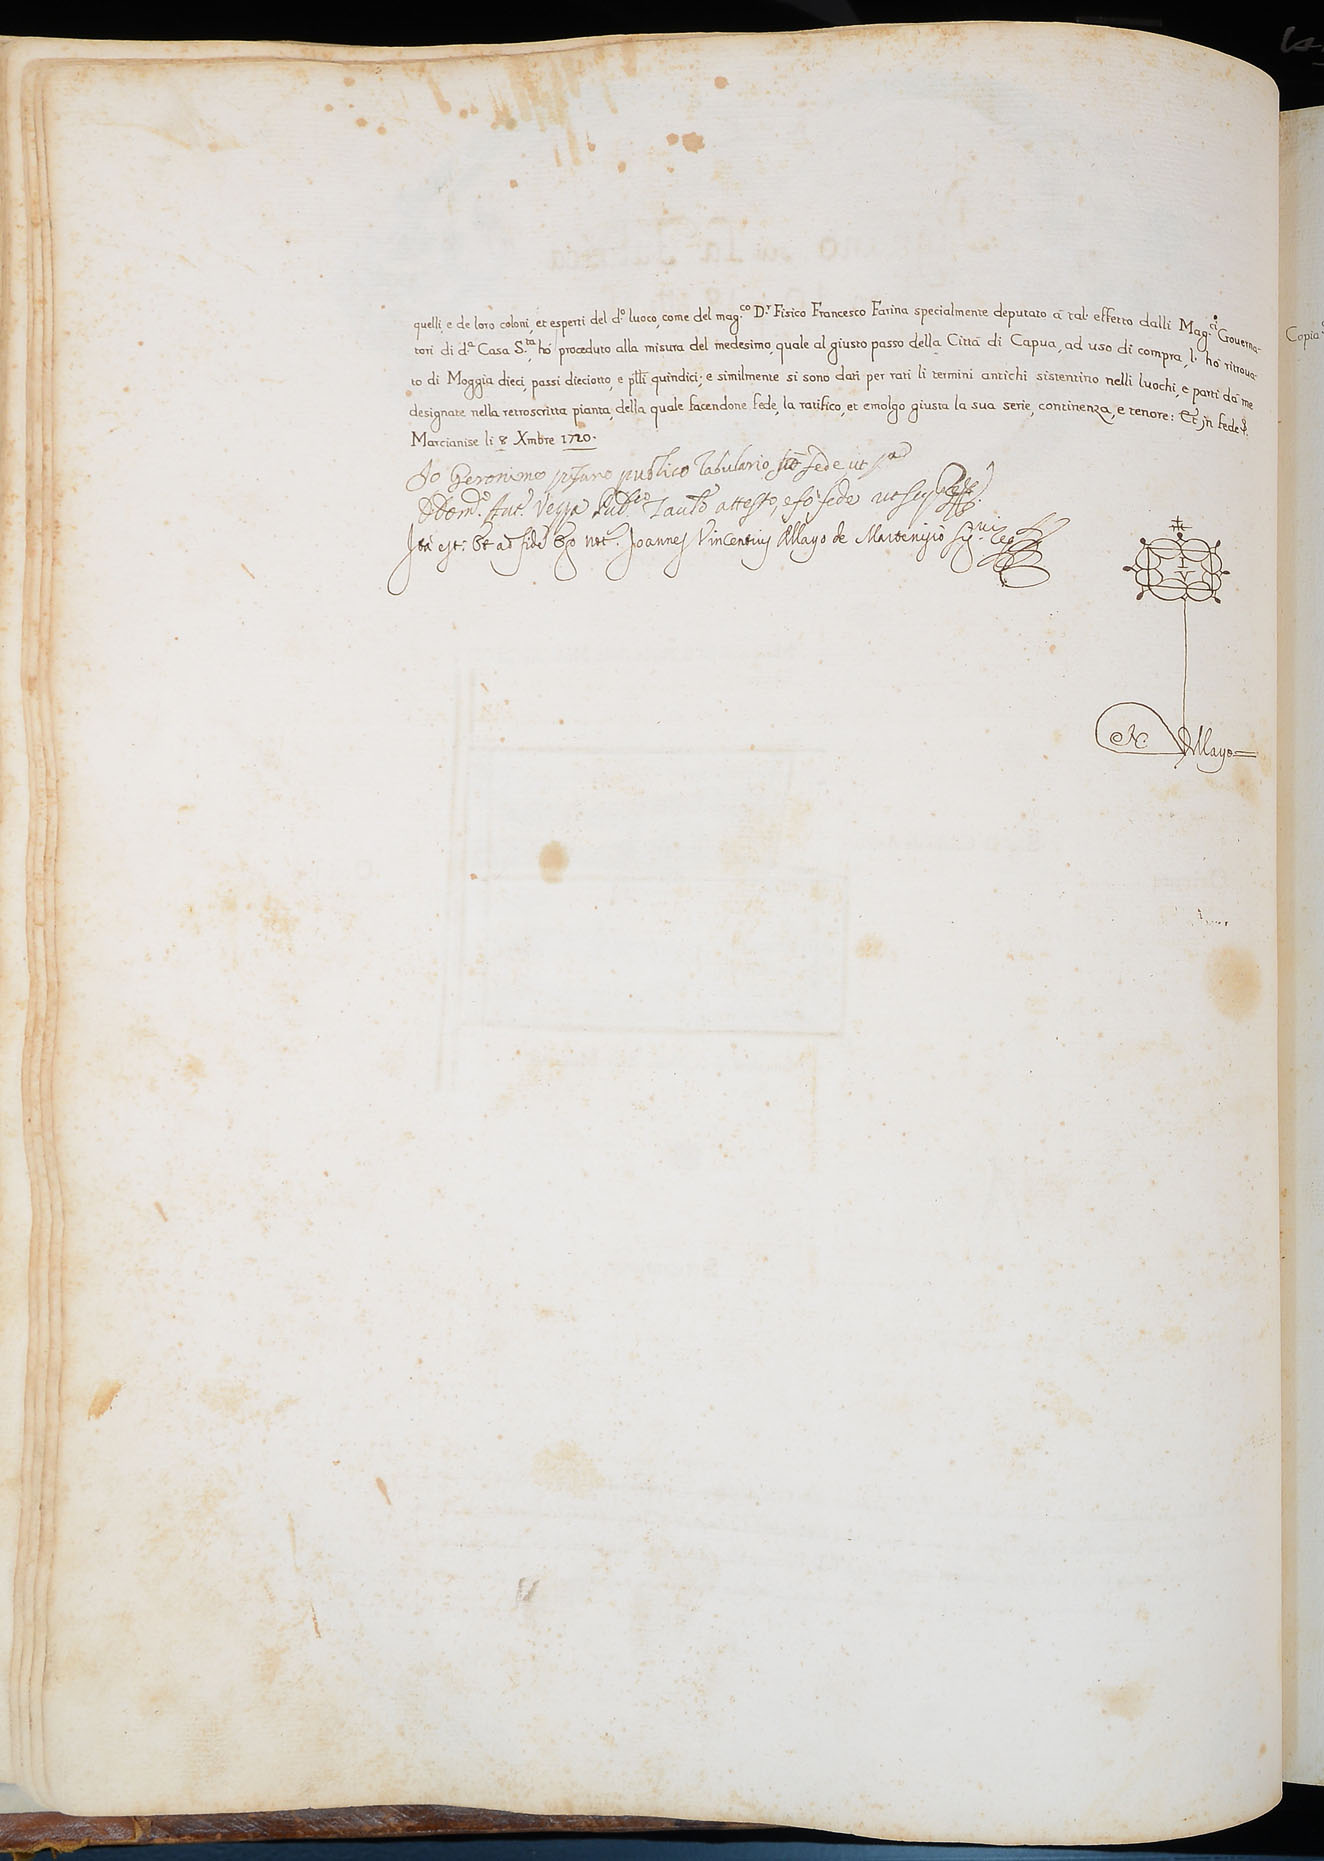 quelli, e de loro coloni, et esperti del d.º luoco, come del mag.co D.r Fisico Francesco Farina specialmente deputato à tal' effetto dalli Mag.ci Governa-
tori di d.a Casa S.ta, hò proceduto alla misura del medesimo, quale al giusto passo della Città di Capua, ad uso di compra, l' hò ritrova-
to di Moggia dieci, passi dieciotto, e p̃tti quindici; e similmente si sono dati per rati li termini antichi sistentino nelli luochi, e parti da me
designate nella retroscritta pianta, della quale facendone fede, la ratifico, et emolgo giusta la sua serie, continenza, e tenore: Et in fede
Marcianise li 8 Xmbre 1720.
Io Geronimo publico Tabulario fò fede ut
attesto, e fò fede ut
Ita est: Et ad fidẽ Ego not.s Joannes Vincentius Mayo de Martenisio
I
V
N Mayo
Copia